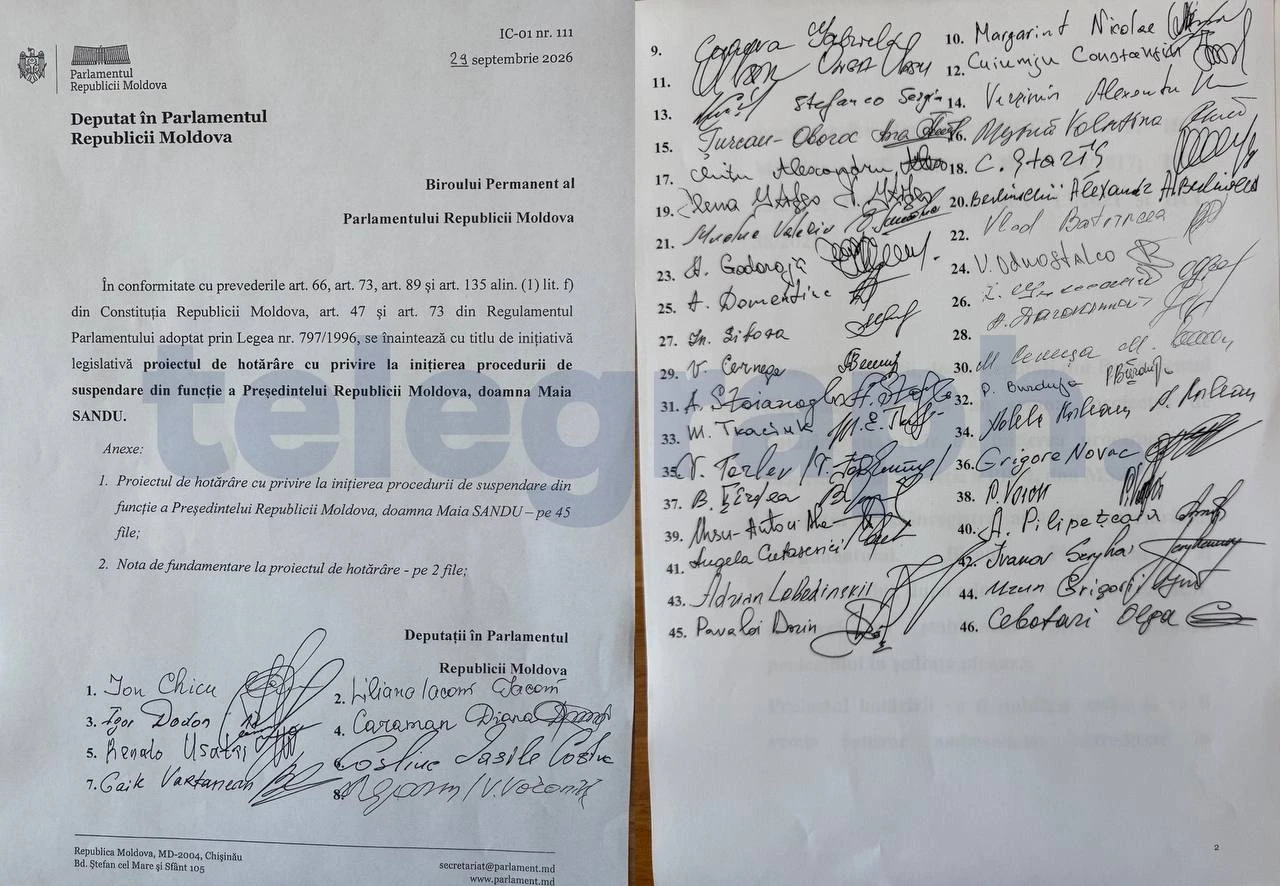 IC-01 nr. 111
29 septembrie 2026
Parlamentul
Republicii Moldova
Deputat în Parlamentul
Republicii Moldova
Biroului Permanent al
Parlamentului Republicii Moldova
În conformitate cu prevederile art. 66, art. 73, art. 89 și art. 135 alin. (1) lit. f)
din Constituția Republicii Moldova, art. 47 și art. 73 din Regulamentul
Parlamentului adoptat prin Legea nr. 797/1996, se înaintează cu titlu de inițiativă
legislativă proiectul de hotărâre cu privire la inițierea procedurii de
suspendare din funcție a Președintelui Republicii Moldova, doamna Maia
SANDU.
Anexe:
1. Proiectul de hotărâre cu privire la inițierea procedurii de suspendare din
funcție a Președintelui Republicii Moldova, doamna Maia SANDU – pe 45
file;
2. Nota de fundamentare la proiectul de hotărâre - pe 2 file;
Deputații în Parlamentul
Republicii Moldova
1. Ion Chicu
2. Liliana Iaconi Iaconi
3. Igor Dodon
4. Caraman Diana
5. Renato Usatîi
6. Costiuc Vasile Costiuc
7. Gaik Vartanean
8.
Republica Moldova, MD-2004, Chișinău
Bd. Ștefan cel Mare și Sfânt 105
secretariat@parlament.md
www.parlament.md
telegraph.
9.
10. Margarint Nicolae
11.
12. Cuiumju Constantin
13. Stefanco Sergiu
14. Verșinin Alexandru
15. Țurcan-Oboroc Ana
16. Valentina
17. Alexandru
18. C. Starîș
19. Ilena
20. Berlinschii Alexandr A. Berlinschii
21. Valeriu
22. Vlad Batrîncea
23.
24. V. Odnostalco
25. A. Domentine
26.
27.
28.
29. V. Cernega
30.
31. A. Stoianoglo A. Stoianoglo
32. P. Burduja P. Burduja
33. M. Tkaciuk
34.
35. V. Tarlev
36. Grigore Novac
37. B. Țîrdea
38. P. Voron
39.
40. A. Pilipețcaia
41. Angela Cutasevici
42. Ivanov Serghei
43. Adrian Lebedinschii
44. Uzun Grigorii
45. Pavaloi Dorin
46. Cebotari Olga
2